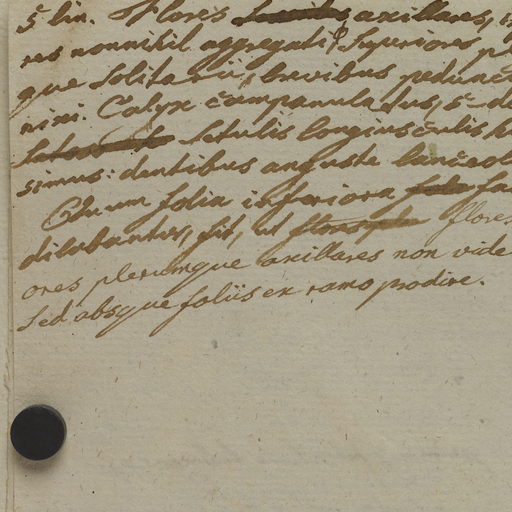 5 lin. Flores axillares,
res nonnihil aggregati, superiores
que solitarii, brevibus pedunc
nini. Calyx campanulatus, 5-d
setulis longiusculis
simus: dentibus anguste lanceol
Quum folia inferiora fa
dilabantur, fit, ut flores
ores plerumque axillares non vide
sed absque foliis ex ramo prodire.